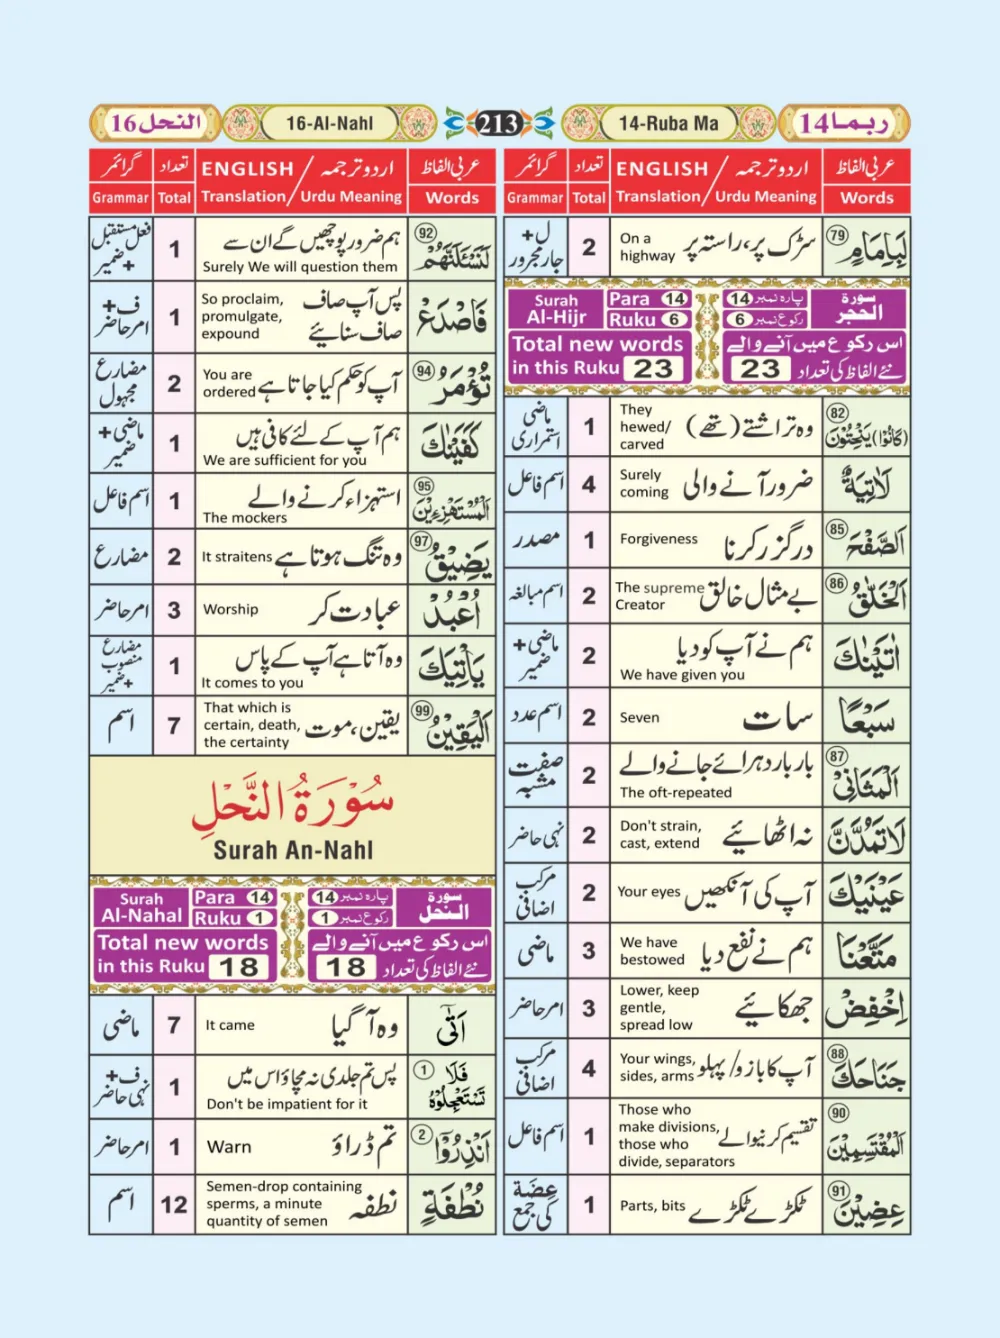 ربما 14
14-Ruba Ma
213
16-Al-Nahl
النحل 16
عربی الفاظ اردو ترجمہ / ENGLISH تعداد گرائمر
Words Urdu Meaning / Translation Total Grammar
79 لَبِاِمَامٍ سڑک پر، راستہ پر On a highway 2 ل+ جار مجرور
سورۃ الحجر پارہ نمبر 14 رکوع نمبر 6 Para 14 Ruku 6 Surah Al-Hijr
اس رکوع میں آنے والے نئے الفاظ کی تعداد 23
Total new words in this Ruku 23
82 (كَانُوْا) يَنْحِتُوْنَ وہ تراشتے (تھے) They hewed/ carved 1 ماضی استمراری
لَاٰتِيَةٌ ضرور آنے والی Surely coming 4 اسم فاعل
85 اَلصَّفْحَ درگزر کرنا Forgiveness 1 مصدر
86 اَلْخَلّٰقُ بے مثال خالق The supreme Creator 2 اسم مبالغہ
اٰتَيْنٰكَ ہم نے آپ کو دیا We have given you 2 ماضی+ ضمیر
سَبْعًا سات Seven 2 اسم عدد
87 اَلْمَثَانِيْ بار بار دہرائے جانے والے The oft-repeated 2 صفت مشبہ
لَا تَمُدَّنَّ نہ اٹھائیے Don't strain, cast, extend 2 نہی حاضر
عَيْنَيْكَ آپ کی آنکھیں Your eyes 2 مرکب اضافی
مَتَّعْنَا ہم نے نفع دیا We have bestowed 3 ماضی
اِخْفِضْ جھکائیے Lower, keep gentle, spread low 3 امر حاضر
88 جَنَاحَكَ آپ کا بازو/پہلو Your wings, sides, arms 4 مرکب اضافی
90 اَلْمُقْتَسِمِيْنَ تقسیم کرنیوالے Those who make divisions, those who divide, separators 1 اسم فاعل
91 عِضِيْنَ ٹکڑے ٹکڑے Parts, bits 1 عِضَةٌ کی جمع
عربی الفاظ اردو ترجمہ / ENGLISH تعداد گرائمر
Words Urdu Meaning / Translation Total Grammar
92 لَنَسْـَٔلَنَّهُمْ ہم ضرور پوچھیں گے ان سے Surely We will question them 1 فعل مستقبل + ضمیر
فَاصْدَعْ پس آپ صاف صاف سنائیے So proclaim, promulgate, expound 1 ف+ امر حاضر
94 تُؤْمَرُ آپ کو حکم کیا جاتا ہے You are ordered 2 مضارع مجہول
كَفَيْنٰكَ ہم آپ کے لئے کافی ہیں We are sufficient for you 1 ماضی+ ضمیر
95 اَلْمُسْتَهْزِءِيْنَ استہزاء کرنے والے The mockers 1 اسم فاعل
97 يَضِيْقُ وہ تنگ ہوتا ہے It straitens 2 مضارع
اُعْبُدْ عبادت کر Worship 3 امر حاضر
يَأْتِيَكَ وہ آتا ہے آپ کے پاس It comes to you 1 مضارع منصوب + ضمیر
99 اَلْيَقِيْنُ یقین، موت That which is certain, death, the certainty 7 اسم
سُوْرَةُ النَّحْلِ
Surah An-Nahl
سورۃ النحل پارہ نمبر 14 رکوع نمبر 1 Para 14 Ruku 1 Surah Al-Nahal
اس رکوع میں آنے والے نئے الفاظ کی تعداد 18
Total new words in this Ruku 18
اَتٰۤى وہ آ گیا It came 7 ماضی
1 فَلَا تَسْتَعْجِلُوْهُ پس تم جلدی نہ مچاؤ اس میں Don't be impatient for it 1 ف+ نہی حاضر
2 اَنْذِرُوْٓا تم ڈراؤ Warn 1 امر حاضر
نُطْفَةٍ نطفہ Semen-drop containing sperms, a minute quantity of semen 12 اسم